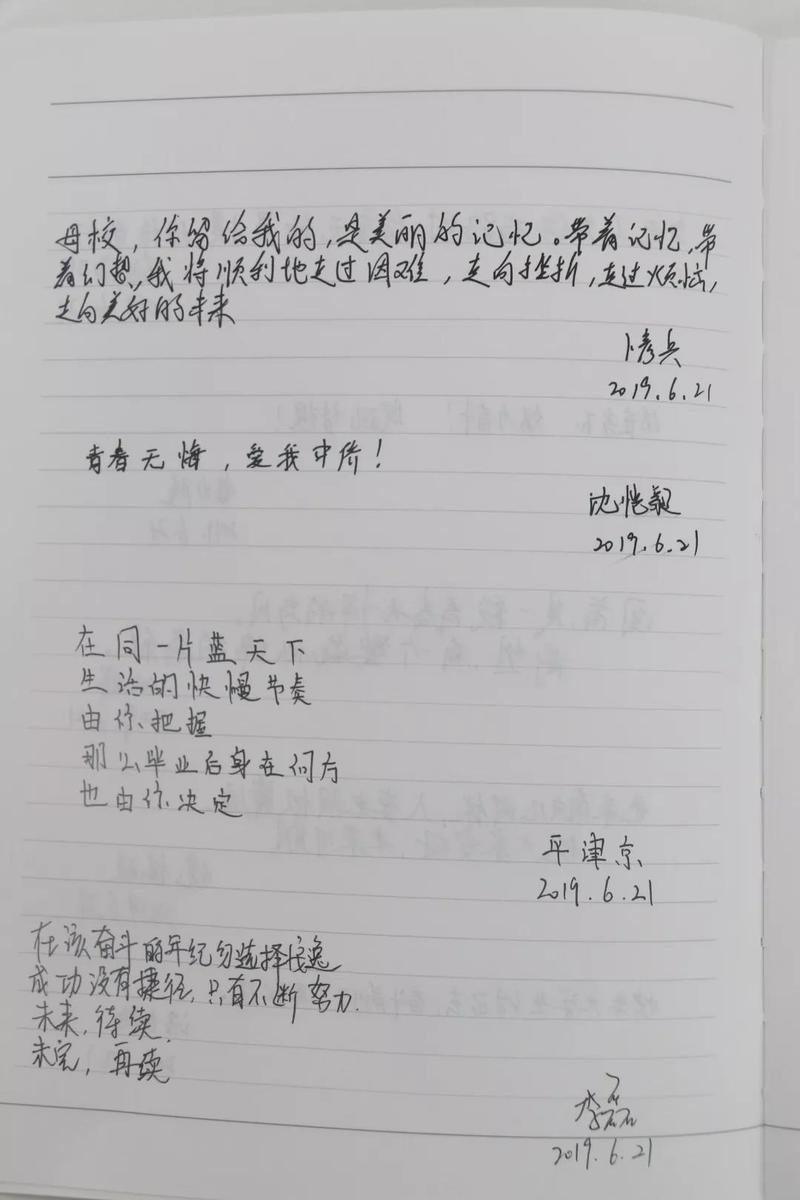 母校，你留给我的，是美丽的记忆。带着记忆，带
着幻想，我将顺利地走过困难，走向挫折，走过烦恼，
走向美好的未来
2019.6.21
青春无悔，爱我中侨！
沈恺
2019.6.21
在同一片蓝天下
生活的快慢节奏
由你把握
那么毕业后身在何方
也由你决定
平津京
2019.6.21
在该奋斗的年纪勿选择安逸
成功没有捷径，只有不断努力.
未来，待续.
未完，再续
李磊
2019.6.21